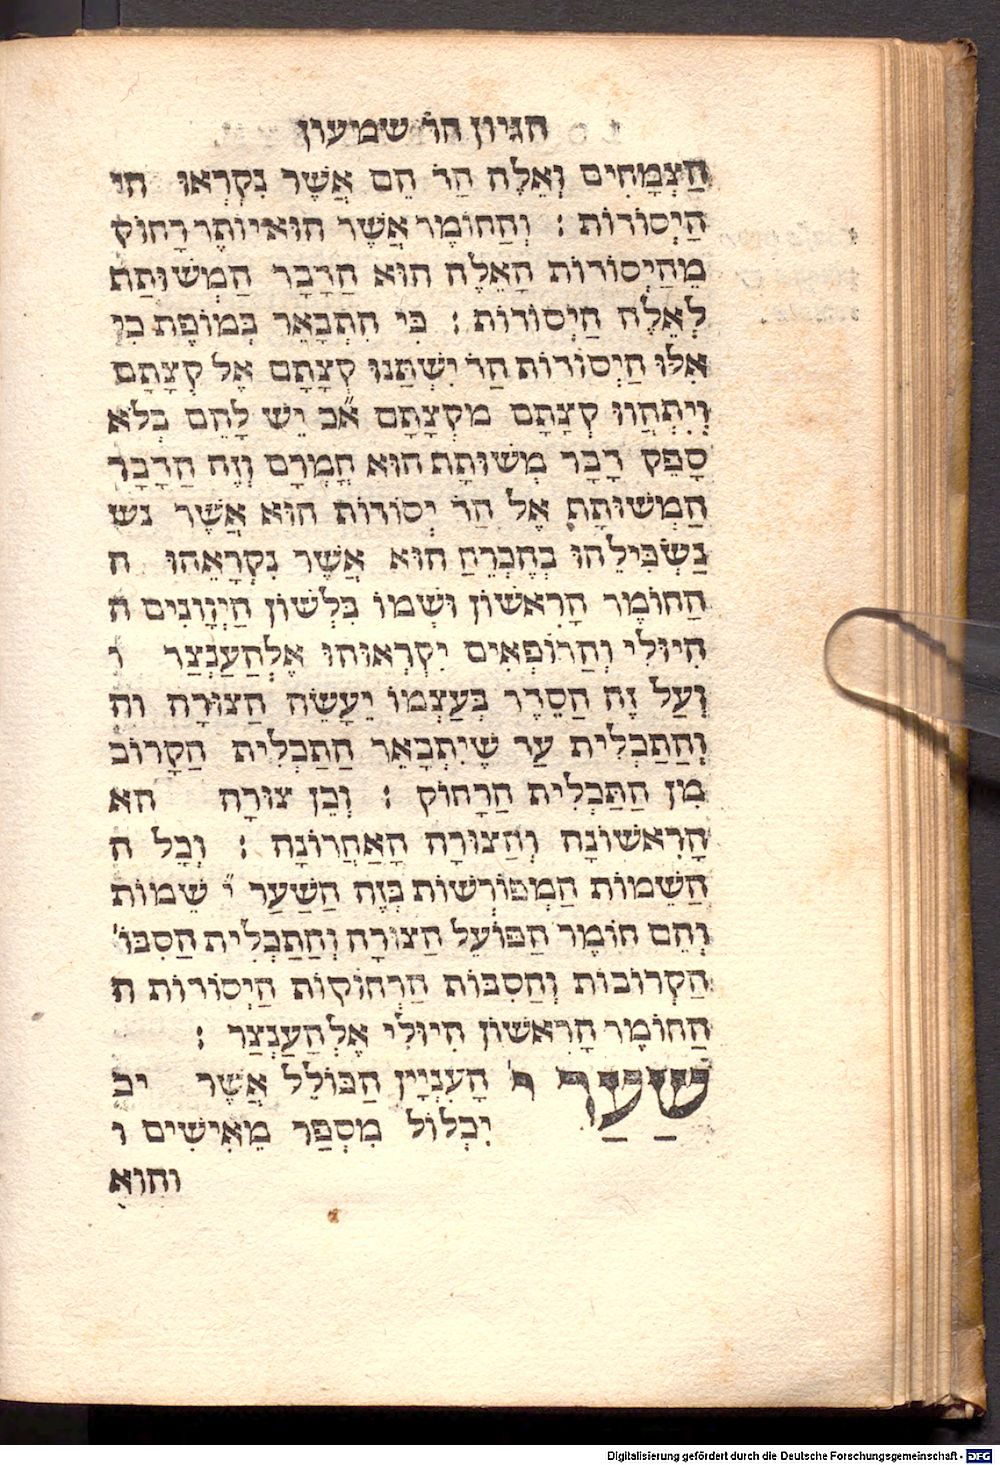 הגיון הר שמעון
הַצְּמָּחִים וְאֵלֶּה הַר הֵם אֲשֶׁר נִקְרְאוּ הי
הַיְסוֹדוֹת : וְהַחוֹמֶר אֲשֶׁר הוּא יוֹתֶר רָחוֹק
מֵהַיְסוֹדוֹת הָאֵלֶּה הוּא הַדָּבָר הַמְשׁוּתַּת
לְאֵלֶּה הַיְסוֹדוֹת : כִּי הִתְבָּאֵר בְּמוֹפֶת כִּי
אִלּוּ הַיְסוֹדוֹת הַר יִשְׁתַּנּוּ קְצָתָם אֶל קְצָתָם
וְיִתְהֲווּ קְצָתָם מקְצָתָם אכ יֵשׁ לָהֶם בְּלֹא
סָפֵק דָּבָר מְשׁוּתָּת הוּא חָמְרָם וְזֶה הַדָּבָר
הַמְשׁוּתָּת אֶל הַר יְסוֹדוֹת הוּא אֲשֶׁר נש
נַשְׂכִּילֵהוּ בְּהֶכְרֵחַ הוּא אֲשֶׁר נִקְרָאֵהוּ ה
הַחוֹמֶר הָרִאשׁוֹן וּשְׁמוֹ בִּלְשׁוֹן הַיְּוָנִים ה
הִיוּלִי וְהָרוֹפְאִים יִקְרְאוּהוּ אֶלְהַעַנְצַר ו
וְעַל זֶה הַסֵּדֶר בְּעַצְמוֹ יֵעָשֶׂה הַצּוּרָה וה
וְהַתַכְלִית עַד שֶׁיִּתְבָּאֵר הַתַּכְלִית הַקָּרוֹב
מִן הַתַּכְלִית הַרָחוֹק : וְכֵן צוּרָה הא
הָרִאשׁוֹנָה וְהַצוּרָה הָאַחֲרוֹנָה : וְכָל ה
הַשֵּׁמוֹת הַמְפוֹרְשׁוֹת בְּזֶה הַשַּׁעַר י שֵׁמוֹת
וְהֵם חוֹמֶר הַפּוֹעֵל הַצּוּרָה וְהַתַכְלִית הַסִּבּוֹ'
הַקְּרוֹבוֹת וְהַסִבּוֹת הַרְחוֹקוֹת הַיְסוֹדוֹת ה
הַחוֹמֶר הָרִאשׁוֹן הִיוּלִי אֶלְהַעַנְצַר :
שַׁעַר י הָעִנְיָין הַכּוֹלֵל אֲשֶׁר יכ
יִכְלוֹל מִסְפַּר מֵאִישִׁים ו
והוא
Digitalisierung gefördert durch die Deutsche Forschungsgemeinschaft - DFG